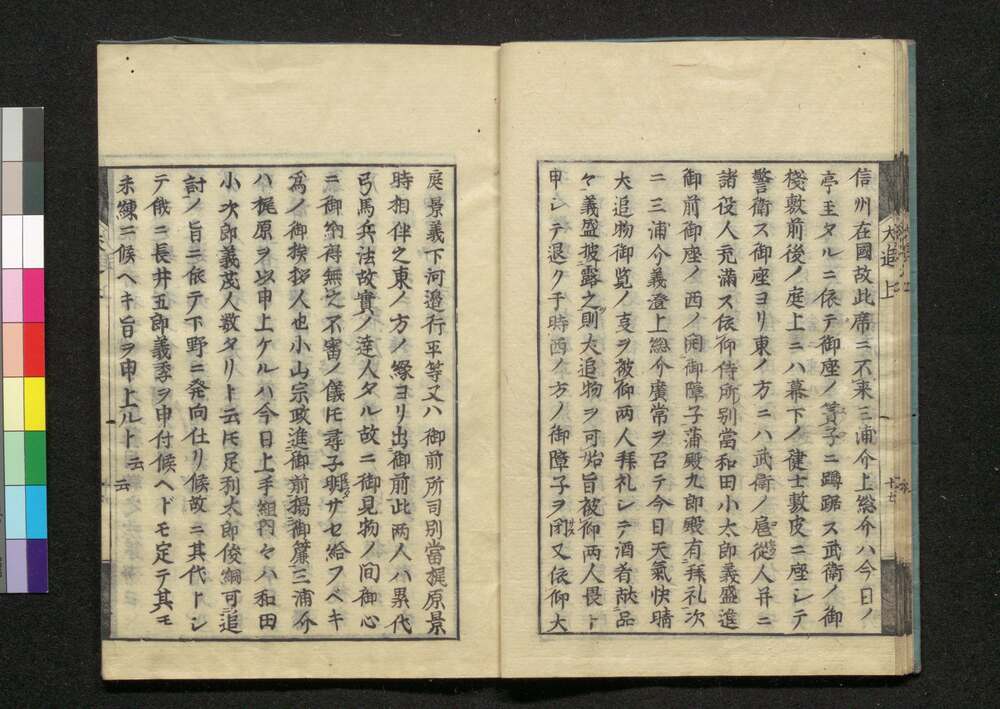 信州在國故此席ニ不来三浦介上総介ハ今日ノ
亭主タルニ依テ御座ノ簀子ニ蹲踞ス武衛ノ御
棧敷前後ノ庭上ニハ幕下ノ健士敷皮ニ座シテ
警衛ス御座ヨリ東ノ方ニハ武衛ノ扈從人并ニ
諸役人充滿ス依仰侍所別當和田小太郎義盛進
御前御座ノ西ノ間御障子蒲殿九郎殿有拜礼次
ニ三浦介義澄上総介廣常ヲ召テ今日天氣快晴
犬追物御覧ノ叓ヲ被仰两人拜礼シテ酒肴献品
々義盛披露之則犬追物ヲ可始旨被仰两人畏ト
申シテ退ク于時西ノ方ノ御障子ヲ閉又依仰大
庭景義下河邉行平等又ハ御前所司別當梶原景
時相伴之東ノ方ノ縁ヨリ出御前此两人ハ累代
弓馬兵法故實ノ達人タル故ニ御見物ノ间御心
ニ御納得無之不審ノ儀モ尋子明サセ給フベキ
爲ノ御挨拶人也小山宗政進御前揚御簾三浦介
ハ梶原ヲ以申上ケルハ今日上手組内々ハ和田
小次郎義茂人数タリト云モ足利太郎俊綱可追
討ノ旨ニ依テ下野ニ発向仕リ候故ニ其代トシ
テ俄ニ長井五郎義季ヲ申付候ヘドモ定テ其モ
未練ニ候ヘキ旨ヲ申上ルト云云
犬追上
十七